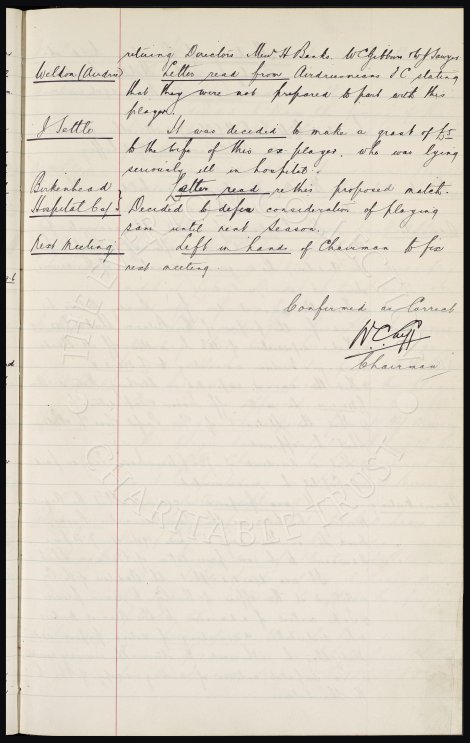 retiring Directors Messrs H Banks. W C Gibbins & W J Sawyer
Weldon (Airdrie) Letter read from Airdrieonians F C stating
that they were not prepared to part with this
player.
J Settle It was decided to make a grant of £5
to the wife of this ex player, who was lying
seriously ill in hospital.
Birkenhead Letter read re this proposed match.
Hospital Cup Decided to defer consideration of playing
same until next season.
Next Meeting Left in hands of Chairman to fix
next meeting.
Confirmed as Correct
W.C. Cuff
Chairman
THE EVERTON COLLECTION
CHARITABLE TRUST